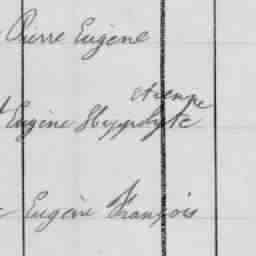 Pierre Eugène
etienne
Eugène Hyppolyte
Eugène François